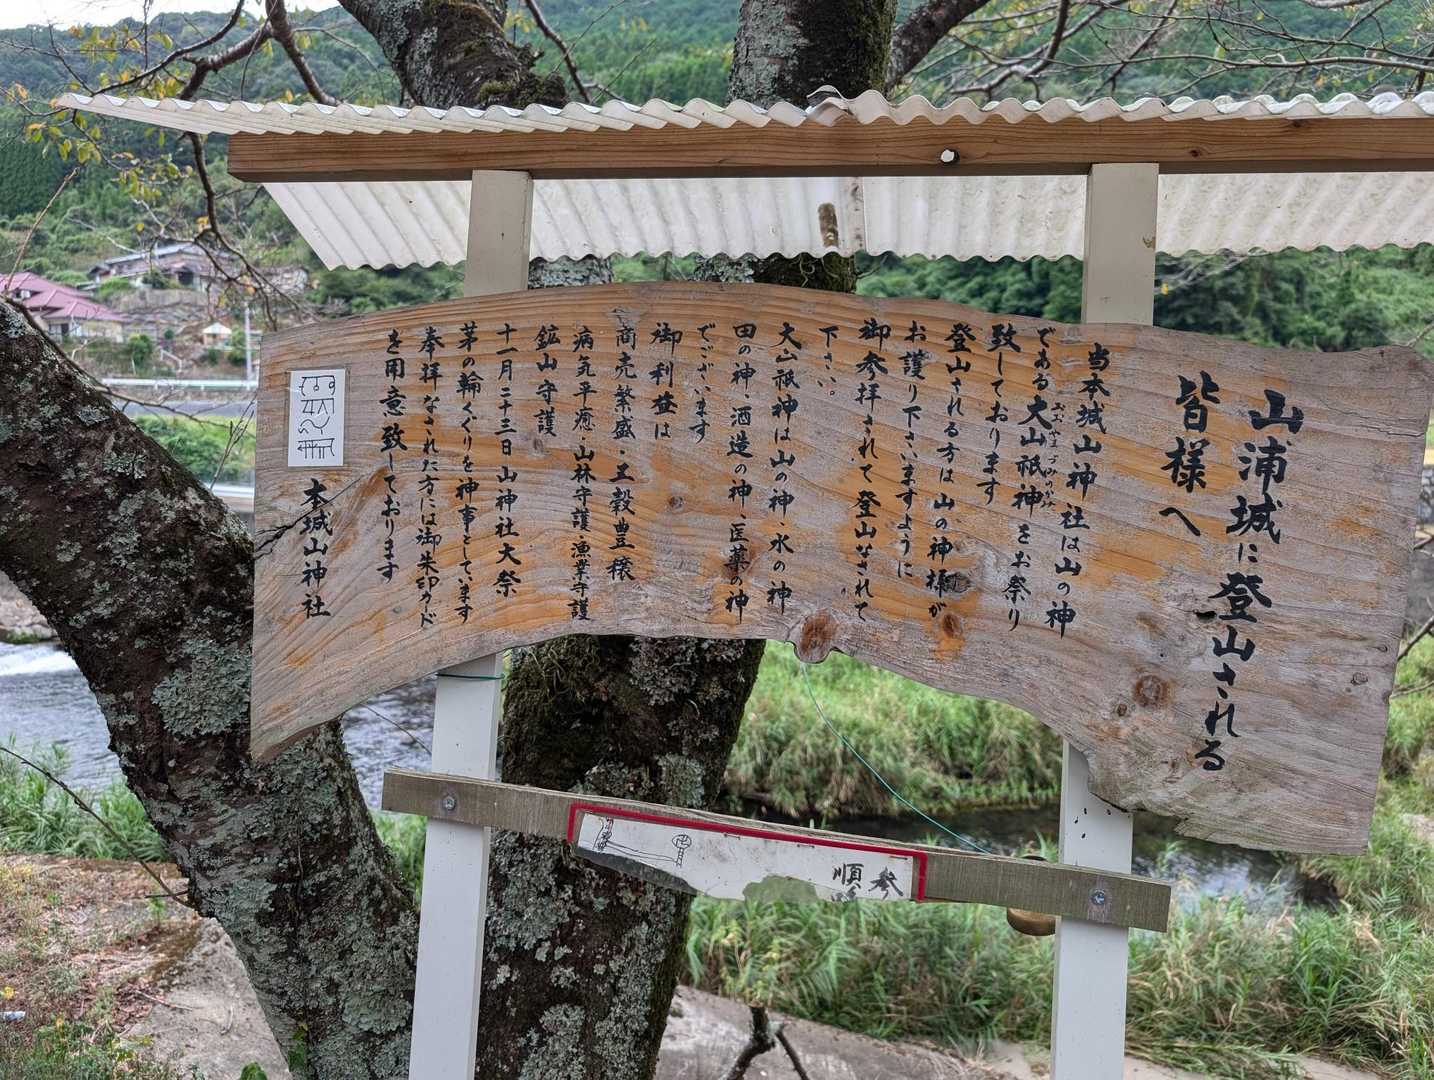 山浦城に登山される
皆様へ
当本城山神社は山の神
である大山祇神をお祭り
おおやまづみのかみ
致しております
登山される方は山の神様が
お護り下さいますように
御参拝されて登山なされて
下さい。
大山祇神は山の神、水の神
田の神、酒造の神、医薬の神
でございます
御利益は
商売繁盛・五穀豊穣
病気平癒・山林守護・漁業守護
鉱山守護
十一月二十三日山神社大祭
茅の輪くぐりを神事としています
奉拝なされた方には御朱印カード
を用意致しております
本城山神社
参
順